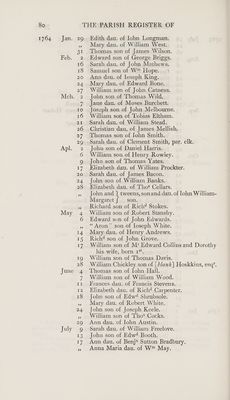 80 THE PARISH REGISTER OF
1764 Jan. 29 Edith dau. of John Longman.
„ Mary dau. of William West.
31 Thomas son of James Wilson.
Feb. 2 Edward son of George Briggs.
16 Sarah dau. of John Mathews.
18 Samuel son of Wm Hope.
20 Ann dau. of Joseph King.
24 Mary dau. of Edward Bone.
27 William son of John Catness.
Mch. 2 John son of Thomas Wild.
7 Jane dau. of Moses Burchett.
10 Joseph son of John Melbourne.
16 William son of Tobias Eltham.
21 Sarah dau. of William Stead.
26 Christian dau. of James Mellish.
27 Thomas son of John Smith.
29 Sarah dau. of Clement Smith, par. clk.
Apl. 2 John son of Daniel Harris.
6 William son of Henry Rowley.
9 John son of Thomas Yates.
17 Elizabeth dau. of William Prockter.
20 Sarah dau. of James Bacon.
24 John son of William Banks.
28 Elizabeth dau. of Thos Cellars.
„ John and } tweens, son and dau. of John William-
Margaret } son.
„ Richard son of Richd Stokes.
May 4 William son of Robert Stansby.
6 Edward son of John Edwards.
„ "Aron" son of Joseph White.
14 Mary dau. of Henry Andrews.
15 Richd son of John Grove.
17 William son of Mr Edward Collins and Dorothy
his wife, born 1st.
19 William son of Thomas Davis.
28 William Chickley son of [blank] Hoskkins, esqr.
June 4 Thomas son of John Hall.
7 William son of William Wood.
11 Frances dau. of Francis Stevens.
12 Elizabeth dau. of Richd Carpenter.
18 John son of Edwd
„ Mary dau. of Robert White.
24 John son of Joseph Keele.
„ William son of Thos Cocks.
29 Ann dau. of John Austin.
July 9 Sarah dau. of William Freelove.
13 John son of Edwd Booth.
17 Ann dau. of Benjn Sutton Bradbury.
„ Anna Maria dau. of Wm May.